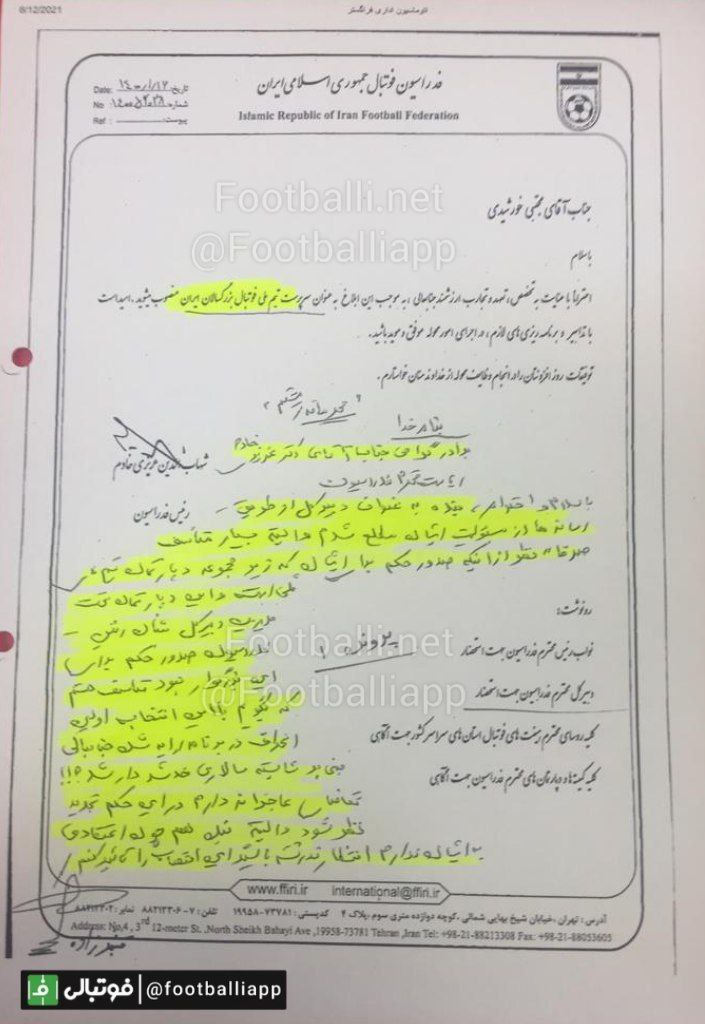 6/12/2021
اتوماسیون اداری فراگستر
فدراسیون فوتبال جمهوری اسلامی ایران
Islamic Republic of Iran Football Federation
تاریخ: Date:
شماره: No
پیوست: Ref :
Footballi.net
@Footballiapp
جناب آقای مجتبی خورشیدی
باسلام
احتراماً با عنایت به تخصص، تعهد و تجارب ارزشمند جنابعالی، به موجب این ابلاغ به عنوان سرپرست تیم ملی فوتبال بزرگسالان ایران منصوب میشوید. امید است
با تدابیر و برنامه ریزی های لازم، در اجرای امور محوله موفق و موید باشید.
توفیقات روز افزونتان را در انجام وظایف محوله از خداوند منان خواستارم.
بنام خدا
شهاب الدین عزیزی خادم
رئیس فدراسیون
برادر گرامی جناب آقای دکتر عزیزی خادم
ریاست محترم فدراسیون
با سلام و احترام، بنده به عنوان دبیرکل از طریق
رسانه ها از مسئولیت ایشان مطلع شدم و البته بسیار متاسف
صرفنظر از اینکه صدور حکم برای ایشان که زیر مجموعه دپارتمان تیم های
ملی است و این دپارتمان تحت
مدیریت دبیرکل
صدور حکم برای
این بزرگوار نبود متاسف هستم
که بگویم با این انتخاب اولین
انحراف در برنامه ارایه شده جنابعالی
مبنی بر شایسته سالاری خدشه دار شد!!!
تقاضای عاجزانه دارم در این حکم تجدید
نظر شود و البته بنده هم چون اعتقادی
به ایشان ندارم انتظار نداشته باشید این انتصاب را تائید کنم
رونوشت:
نواب رئیس محترم فدراسیون جهت استحضار
دبیر کل محترم فدراسیون جهت استحضار
کلیه روسای محترم هیئت های فوتبال استان های سراسر کشور جهت آگاهی
کلیه کمیته ها و دپارتمان های محترم فدراسیون جهت آگاهی
Footballi.net
@Footballiapp
www.ffiri.ir international@ffiri.ir
آدرس : تهران، خیابان شیخ بهایی شمالی، کوچه دوازده متری سوم، پلاک ۴ کدپستی: ۷۳۷۸۱-۱۹۹۵۸ تلفن: ۷-۸۸۲۱۳۳۰۶ نمابر: ۸۸۲۱۳۳۰۲
Address: No,4 , 3rd 12-meter St. ,North Sheikh Bahayi Ave ,19958-73781 Tehran ,Iran Tel: +98-21-88213308 Fax: +98-21-88053605
فوتبالی | @footballiapp